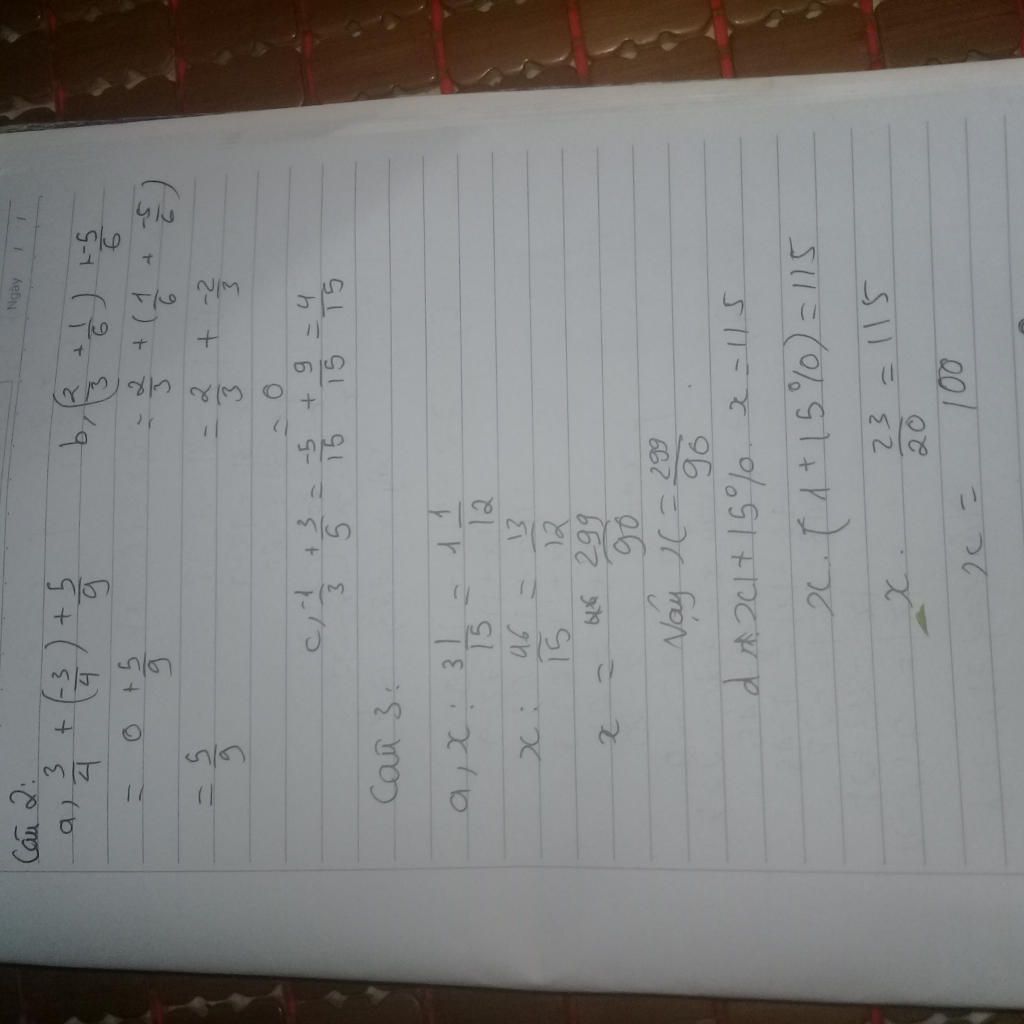 Ngày / /
Câu 2:
a, 3/4 + (-3/4) + 5/9
= 0 + 5/9
= 5/9
b, (2/3 + 1/6) + -5/6
= 2/3 + (1/6 + -5/6)
= 2/3 + -2/3
= 0
c, -1/3 + 3/5 = -5/15 + 9/15 = 4/15
Câu 3:
a, x : 3 1/15 = 1 1/12
x : 46/15 = 13/12
x = 299/90
Vậy x = 299/90
d x + 15%. x = 115
x. (1 + 15%) = 115
x. 23/20 = 115
x = 100